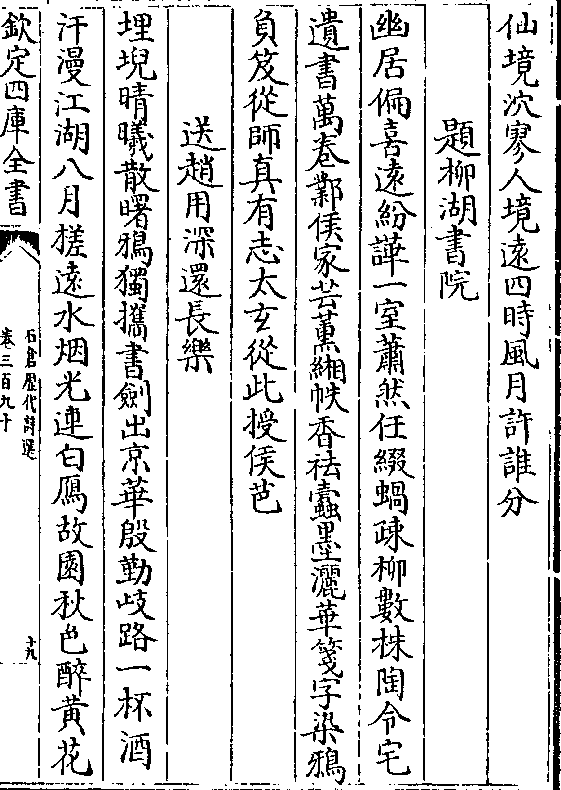 仙境泬寥人境遠四時風月許誰分
題柳湖書院
幽居偏喜遠紛譁一室蕭然任綴蝸疎柳數株陶令宅
遺書萬卷鄴侯家芸薫緗帙香祛蠹墨灑華箋字染鴉
負笈從師真有志太玄從此授侯芭
送趙用深還長樂
埋堄晴曦散曙鴉獨攜書劍出京華殷勤歧路一杯酒
汗漫江湖八月槎遠水烟光連白鴈故園秋色醉黄花
欽定四庫全書
石倉歴代詩選
卷三百九十
十九